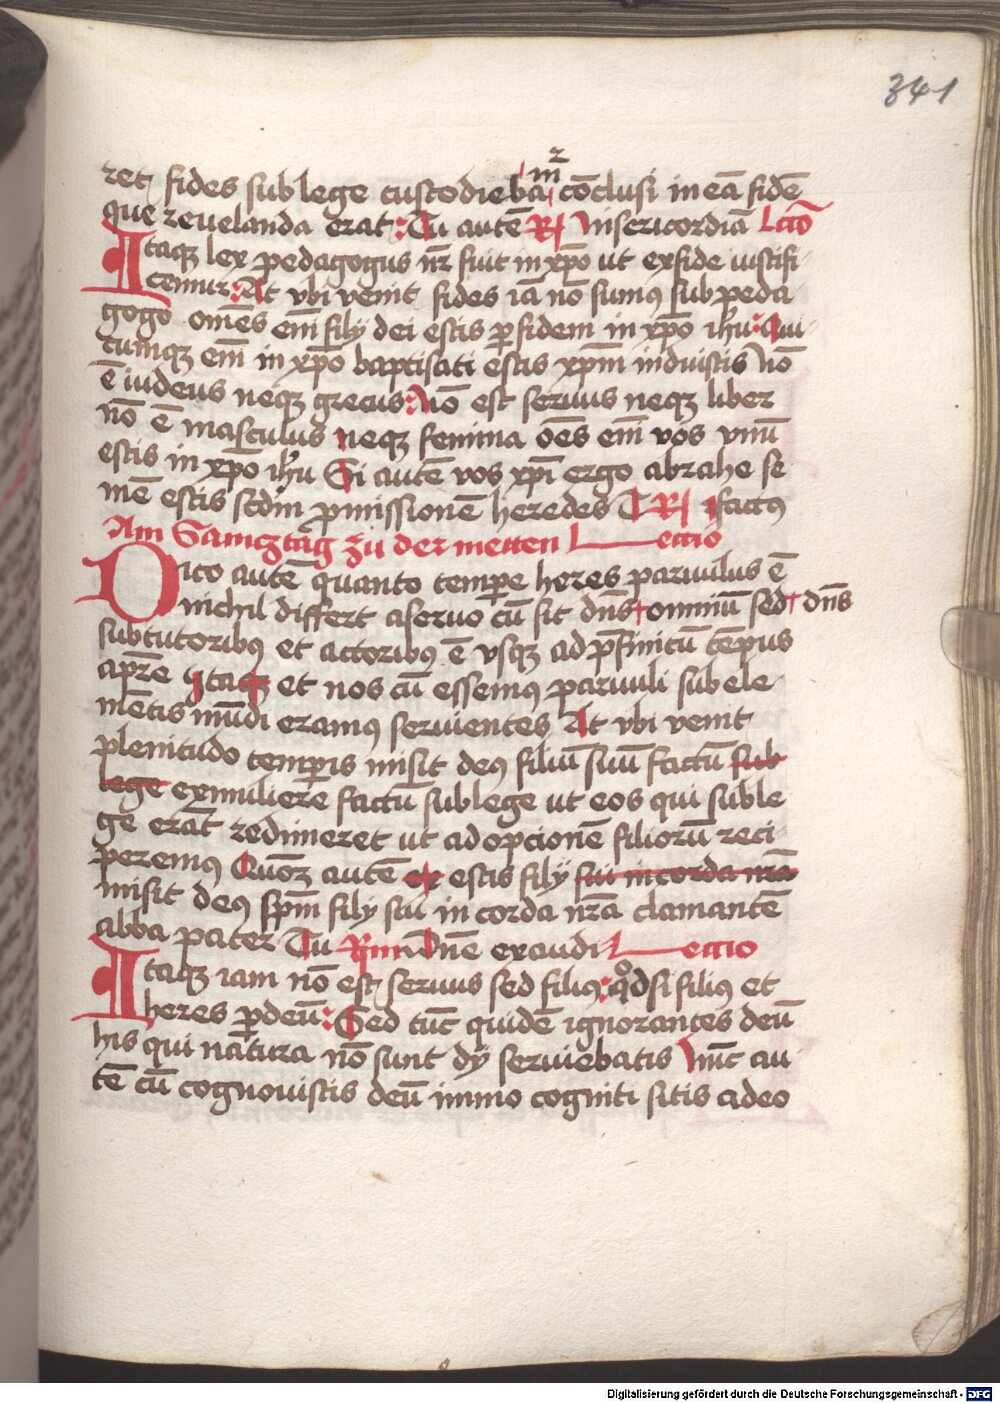 341
ret fides sub lege custodiebam̄ʳ conclusi in eā fidē
que reuelanda erat Tu autē R Misericordiā Lcō
Itaqꝫ lex pedagogus nr̄ fuit in xp̄o ut ex fide iustifi-
cemur At vbi venit fides iā nō sumꝰ sub peda
gogo om̄es em̄ filij dei estis ꝑ fidem in xp̄o ih̄u Qui-
cumqꝫ em̄ in xp̄o baptisati estis xp̄m induistis Nō
ē iudeus neqꝫ grecus Nō est seruus neqꝫ liber
nō ē masculus neqꝫ femina oēs em̄ vos vnū
estis in xp̄o ih̄u Si autē vos xp̄i ergo abrahe se
mē estis scd̄m ꝓmissionē heredes T R factus
Am Samcztag zu der metten Lectio
Dico autē quanto tempe heres paruulus ē
nichil differt a seruo cū sit dn̄s omniū sed dn̄s
sub tutoribꝰ et actoribꝰ ē vsqꝫ ad p̄finitū tēpus
a pr̄e Itaqꝫ et nos cū essemꝰ paruuli sub ele-
mētis mūdi eramꝰ seruientes At vbi venit
plenitudo tempis misit deꝰ filiū suū factū sub
legē ex muliere factū sub lege ut eos qui sub le
ge erāt redimeret ut adopcionē filiorū reci-
peremꝰ Quoꝫ autē estis filij sui in corda nr̄a
misit deꝰ sp̄m filij sui in corda nr̄a clamantē
abba pater Tu Rm̄ Dn̄e exaudi Lectio
Itaqꝫ iam nō est seruus sed filiꝰ qd̊ si filiꝰ et
heres ꝑ deū Sed tūc quidē ignorantes deū
his qui natura nō sunt dij seruiebatis Nūc au-
tē cū cognouistis deū immo cogniti sitis a deo
Digitalisierung gefördert durch die Deutsche Forschungsgemeinschaft - DFG